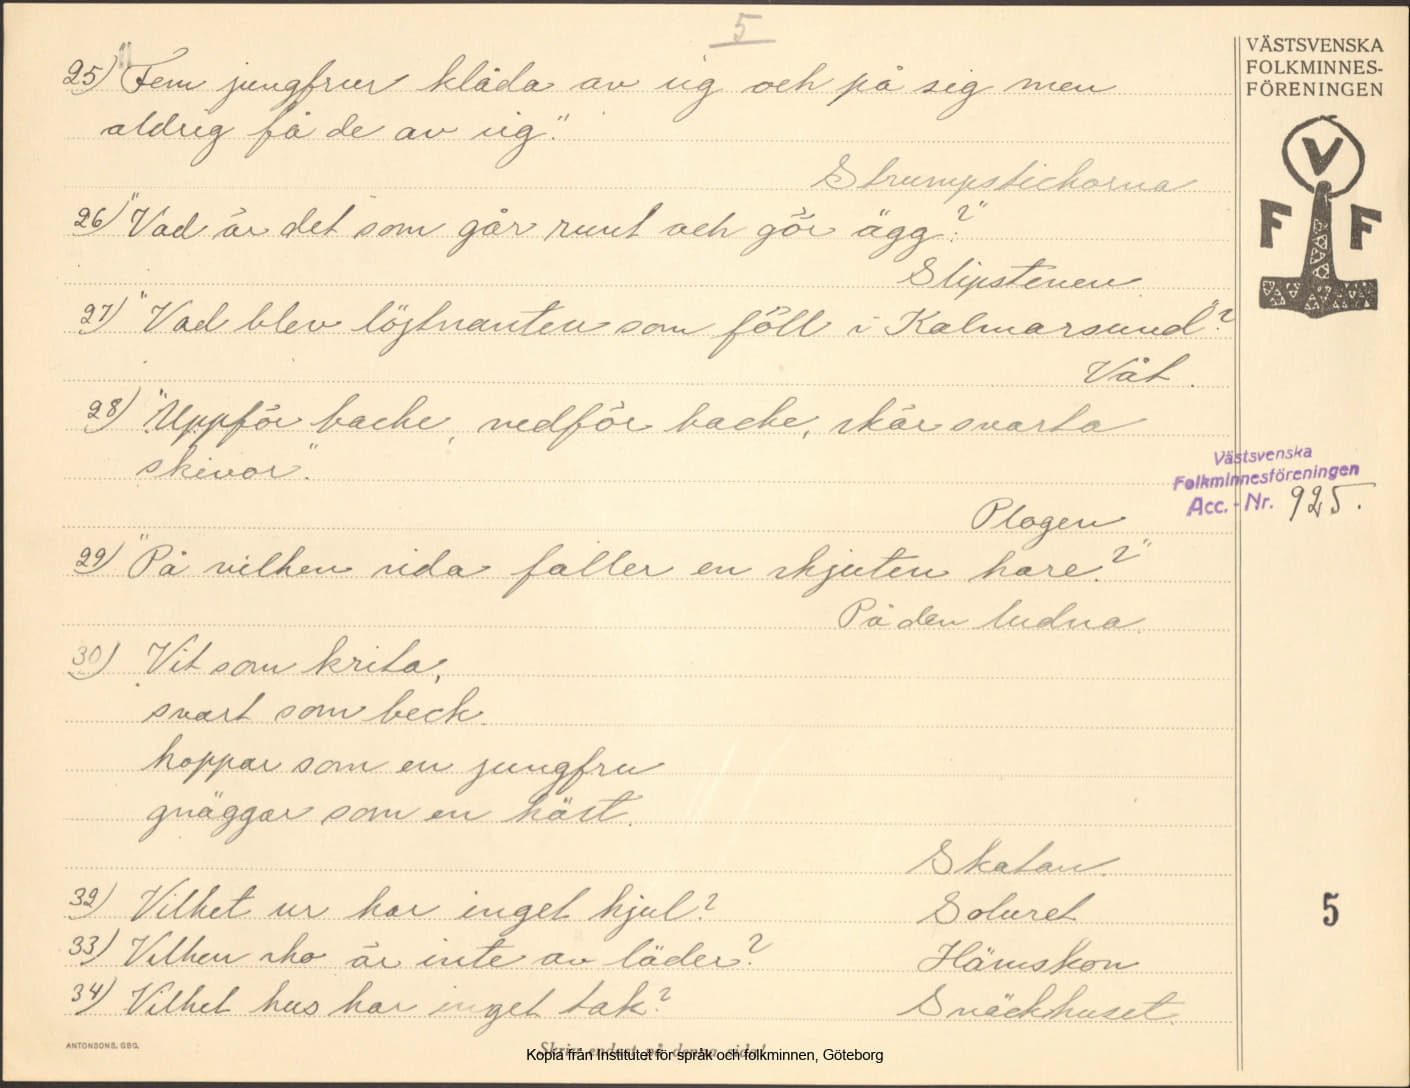 5
VÄSTSVENSKA
FOLKMINNES-
FÖRENINGEN
V
F F
25) "Fem jungfrur kläda av sig och på sig men
aldrig få de av sig."
Strumpstickorna
26) "Vad är det som går runt och gör ägg?"
Slipstenen
27) "Vad blev löjtnanten som föll i Kalmarsund"?
Våt.
28) "Uppför backe, nedför backe, skär svarta
skivor".
Västsvenska
Folkminnesföreningen
Acc. - Nr. 925.
Plogen
29) "På vilken sida faller en skjuten hare?"
På den ludna.
30) Vit som krita,
svart som beck.
hoppar som en jungfru
gnäggar som en häst.
Skatan.
32) Vilket ur har inget hjul? Soluret
33) Vilken sko är inte av läder? Hämskon
34) Vilket hus har inget tak? Snäckhuset.
5
ANTONSONS, GBG.
Skriv endast på denna sida!
Kopia från Institutet för språk och folkminnen, Göteborg